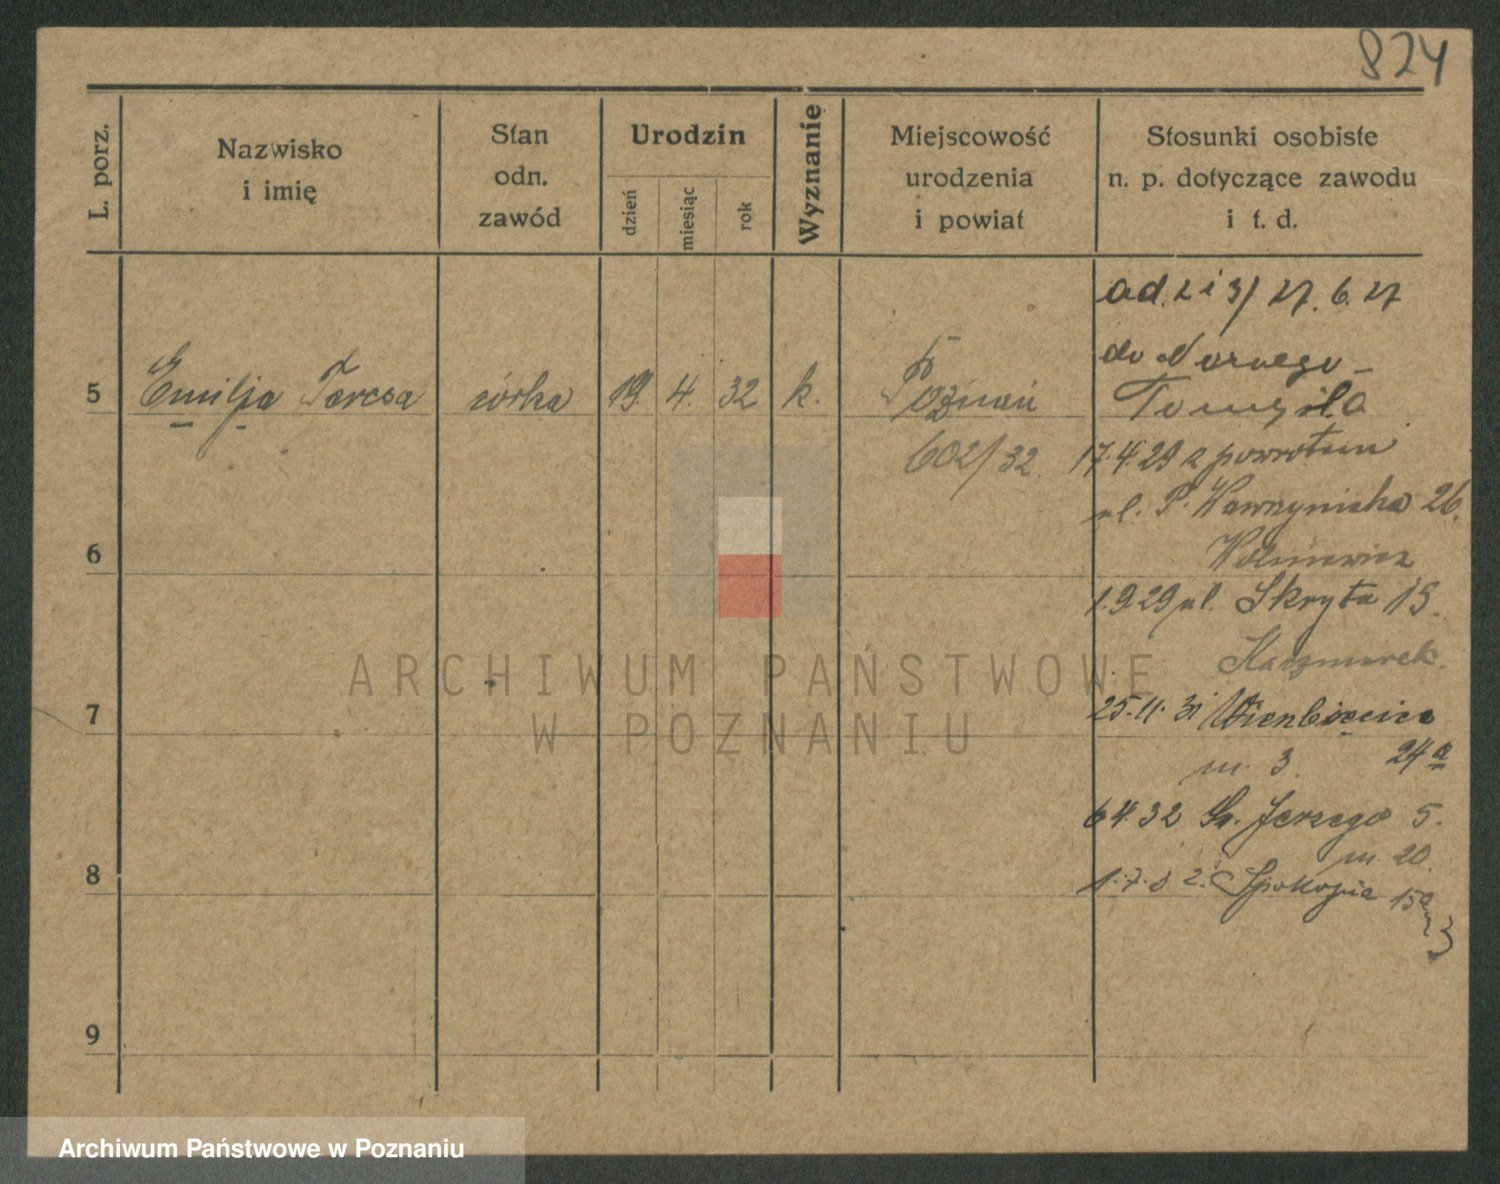 824
L. porz.
Nazwisko
i imię
Stan
odn.
zawód
Urodzin
dzień
miesiąc
rok
Wyznanie
Miejscowość
urodzenia
i powiat
Stosunki osobiste
n. p. dotyczące zawodu
i t. d.
ad. 2 i 3/ 27. 6. 27
do Nowego-
Tomyśla
5 Emilja Teresa córka 19. 4. 32 k. Poznań
602/32.
17.4.29 z powrotem
ul. P. Wawrzyniaka 26.
6
1.9.29 ul. Skryta 15.
Kaczmarek.
7
25.11.31 Wierzbięcice
24a
m. 3.
6.4.32 Św. Jerzego 5.
m. 20.
8
1.7.32. Spokojna 15a
m 3
9
ARCHIWUM PAŃSTWOWE
W POZNANIU
Archiwum Państwowe w Poznaniu